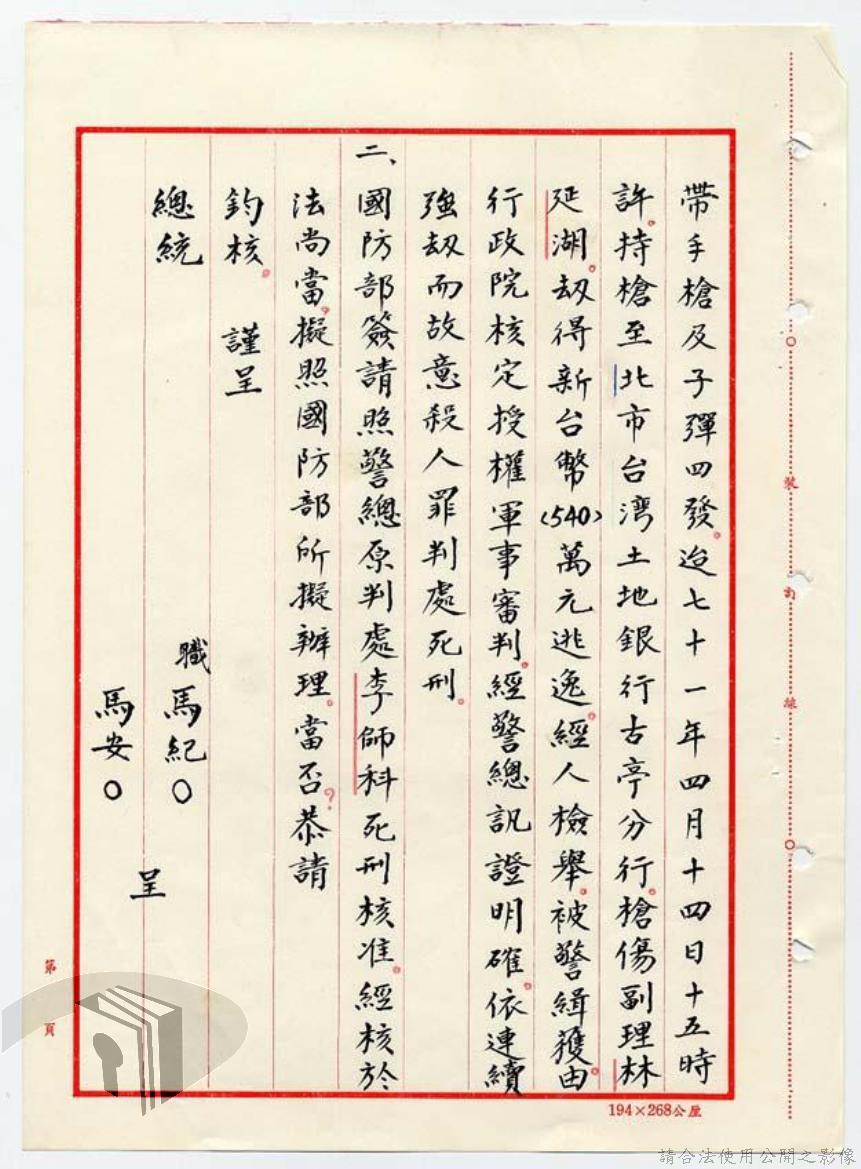 帶手槍及子彈四發。迨七十一年四月十四日十五時
許。持槍至北市台湾土地銀行古亭分行。槍傷副理林
延湖。刼得新台幣(540)萬元逃逸。經人檢舉。被警緝獲。由
行政院核定授權軍事審判。經警總訊證明確。依連續
強刼而故意殺人罪判處死刑。
二、國防部簽請照警總原判處李師科死刑核准。經核於
法尚當。擬照國防部所擬辦理。當否?恭請
鈞核。 謹呈
總統
職 馬紀〇
馬安〇
呈
裝
訂
線
第 頁
194×268公厘
請合法使用公開之影像